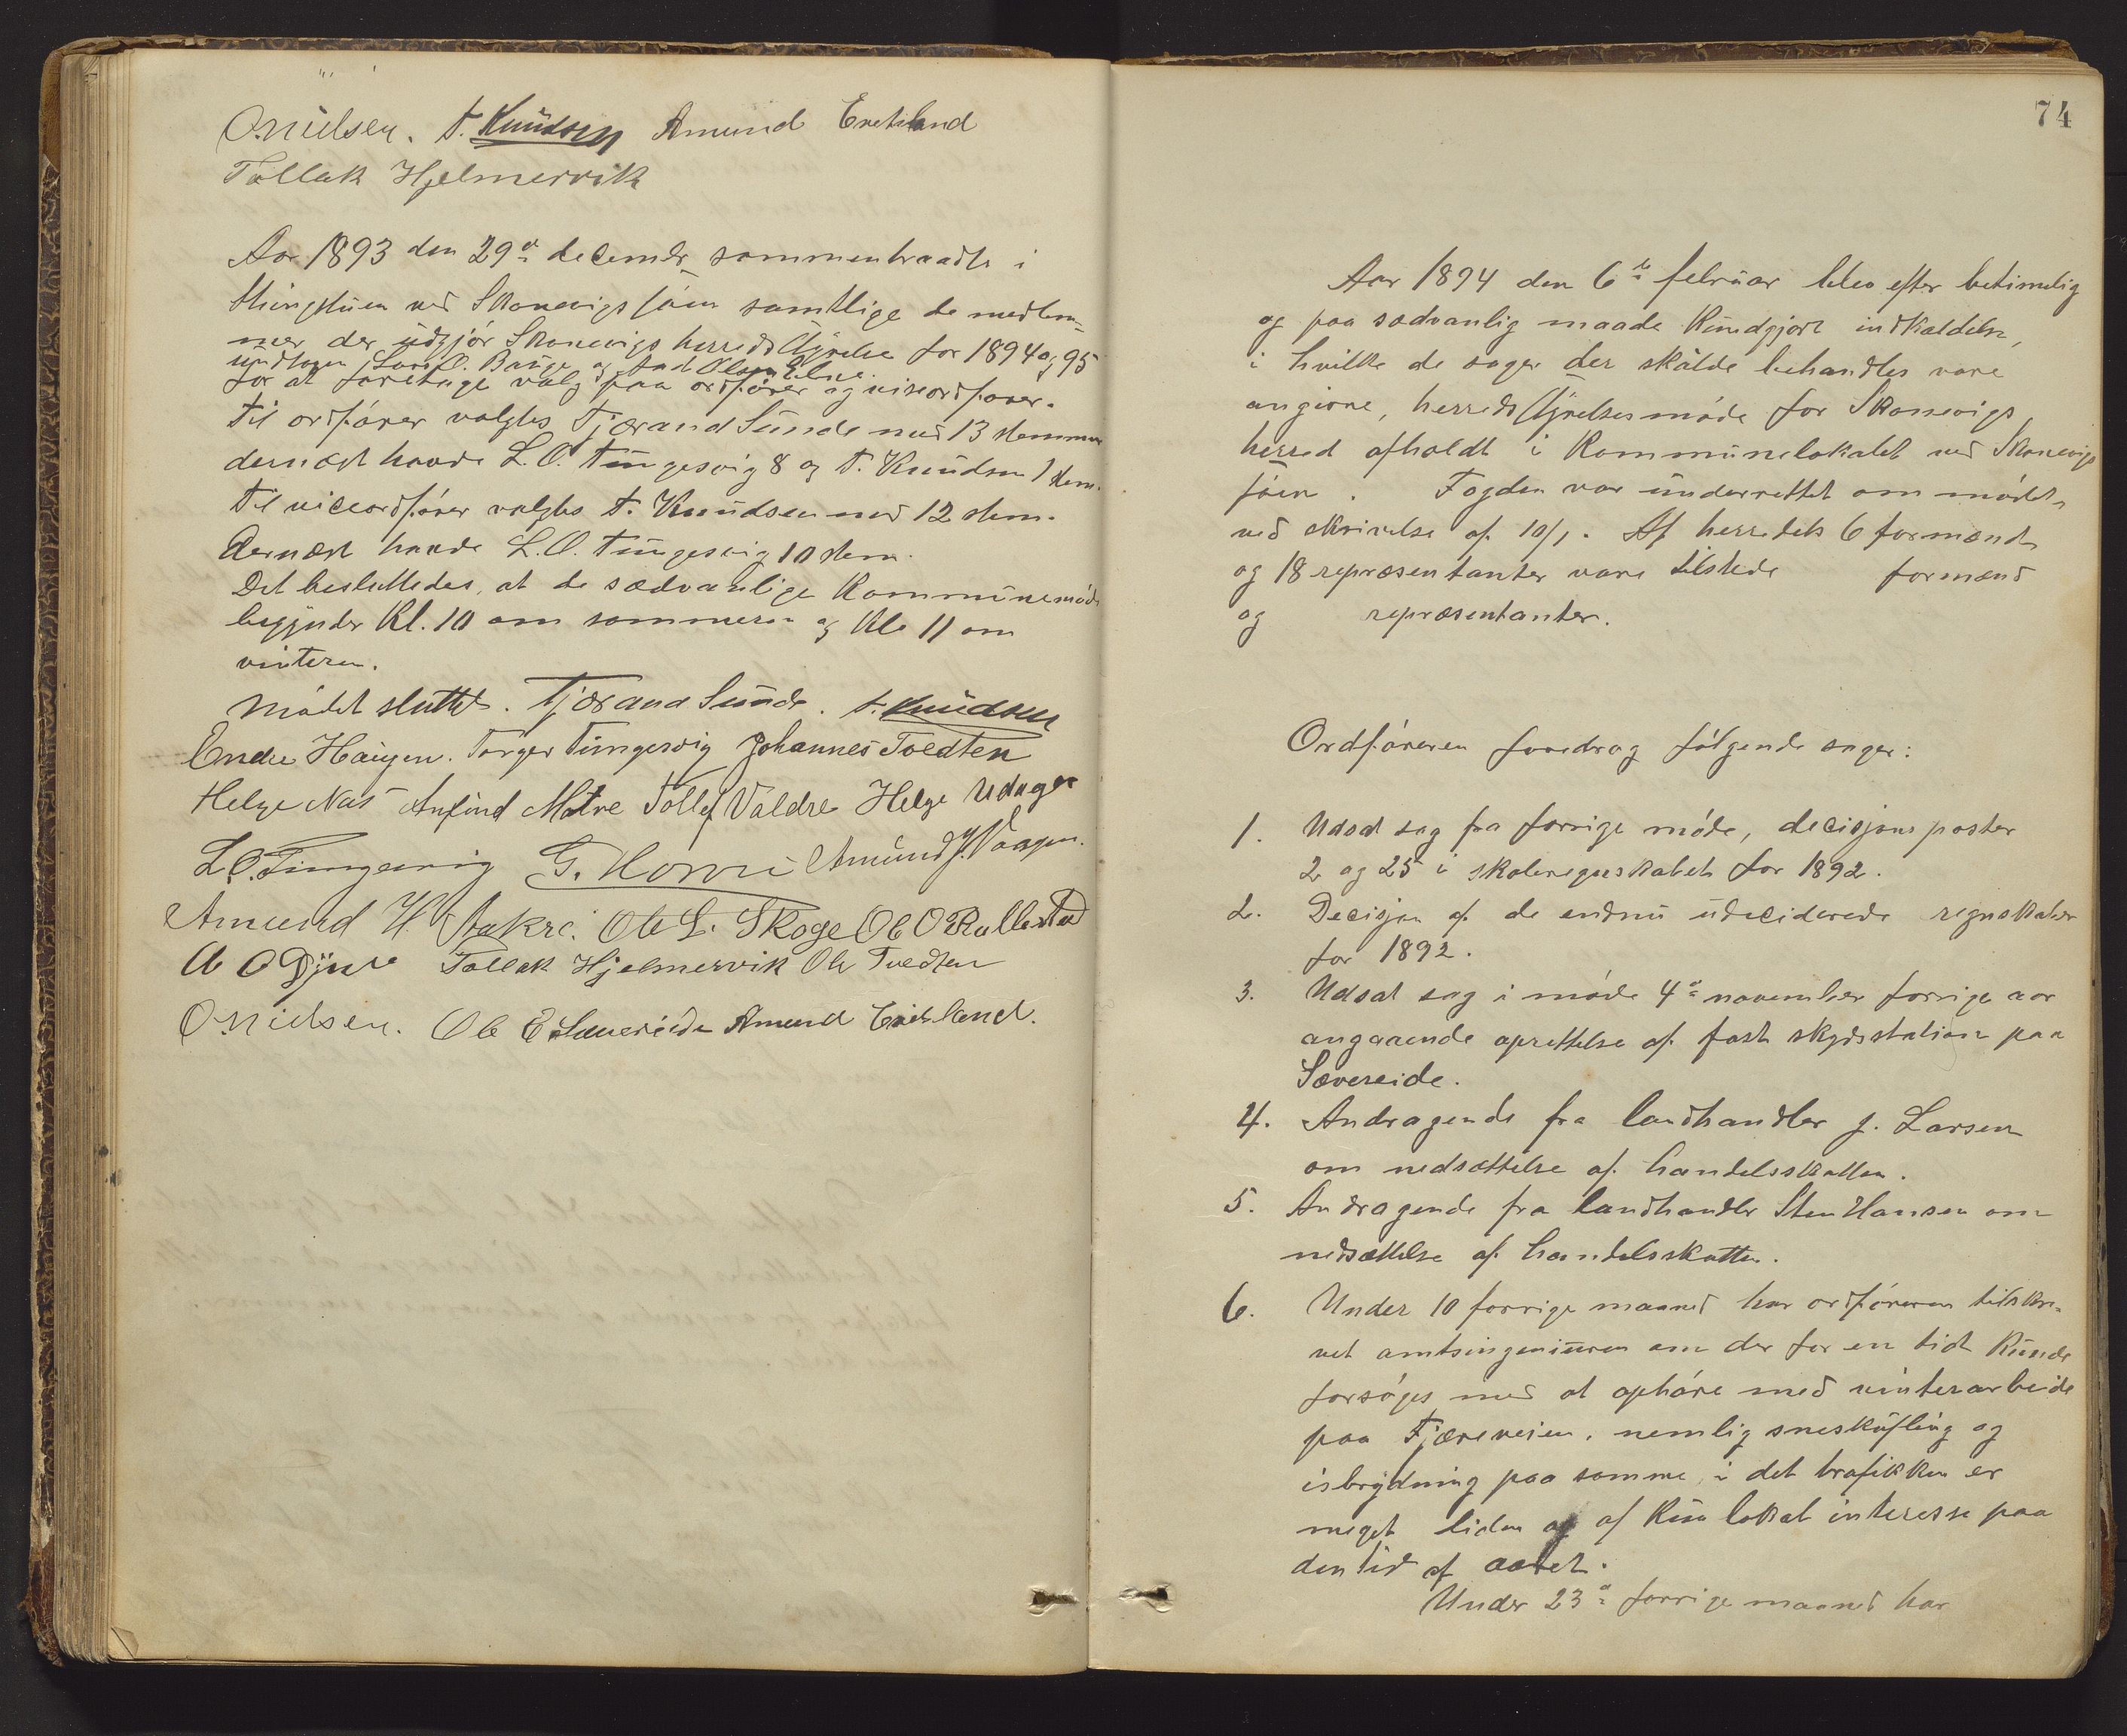 O. Nielsen. T. Knudsen Amund Eretsland
Tollak Hjelmervik
Aar 1893 den 29de decembr sammentraadte i
thingstuen ved Skonevigsjøen samtlige de medlem-
mer der udgjør Skonevigs herredsstyrelse for 1894 og 95
undtagen Lars O. Bauge og And Olsen Ebne
for at foretage valg paa ordfører og viseordfører.
Til ordfører valgtes Tjærand Sunde med 13 stemmer
dernæst havde L. O. Tungesvig 8 og T. Knudsen 1 stem.
Til viceordfører valgtes T. Knudsen med 12 stem.
Dernæst havde L. O. Tungesvig 10 stem.
Det besluttedes, at de sædvanlige Kommunemøde
begynder Kl. 10 om sommeren og Kl. 11 om
vinteren.
Mødet sluttet. Tjærand Sunde. T. Knudsen
Endre Haugen. Torger Tungesvig Johannes Tvedten
Helge Næs Anfind Matre Tollef Valdre Helge Udager
L. O. Tungesvig G. Homri Amund J. Vaagen.
Amund H. Aakre. Ole L. Skoge Ole O Rullestad
A O Djuve Tollak Hjelmervik Ole Tvedten
O. Nielsen. Ole E Sævereide Amund Eretsland.
74
Aar 1894 den 6te februar blev efter betimelig
og paa sædvanlig maade Kundgjort indkaldelse,
i hvilke de sager der skulde behandles vare
angivne, herredsstyrelsesmøde for Skonevigs
herred afholdt i Kommunelokalet ved Skonevigs
jøen. Fogden var underrettet om mødet
ved skrivelse af 10/1. Af herredets 6 formænd
og 18 repræsentanter vare tilstede formænd
og repræsentanter.
Ordføreren foredrog følgende sager:
1. Udsat sag fra forrige møde, decisjons poster
2 og 25 i skoleregnskabet for 1892.
2. Decisjon af de endnu udeciderede regnskaber
for 1892.
3. Udsat sag i møde 4de november forrige aar
angaaende oprettelse af fast skydsstation paa
Sævereide.
4. Andragende fra landhandler J. Larsen
om nedsættelse af handelsskatten.
5. Andragende fra landhandler Sten Hansen om
nedsættelse af handelsskatten.
6. Under 10 forrige maaned har ordføreren tilskre-
vet amtsingeniøren om der for en tid Kunde
forsøges med at ophøre med vinterarbeide
paa Fjæreveien, nemlig sneskufling og
isbrydning paa samme, i det trafikken er
meget liden og af Kun lokal interesse paa
den tid af aaret.
Under 23de forrige maaned har